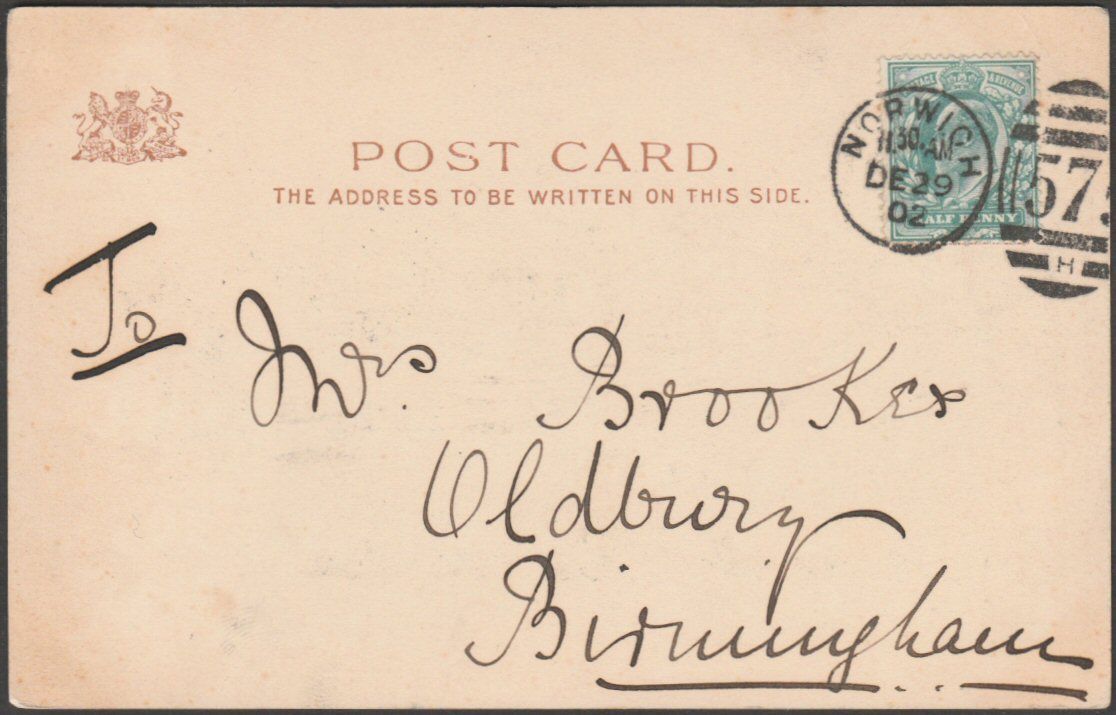 POSTAGE & REVENUE
NORWICH
11.30 AM
DE 29
02
HALF PENNY
575
H
POST CARD.
THE ADDRESS TO BE WRITTEN ON THIS SIDE.
To
Mrs. Brookes
Oldbury
Birmingham